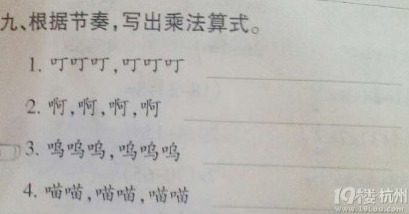 九、根据节奏,写出乘法算式。
1. 叮叮叮,叮叮叮
2. 啊,啊,啊,啊
3. 呜呜呜,呜呜呜
4. 喵喵,喵喵,喵喵
19楼杭州
www.19lou.com